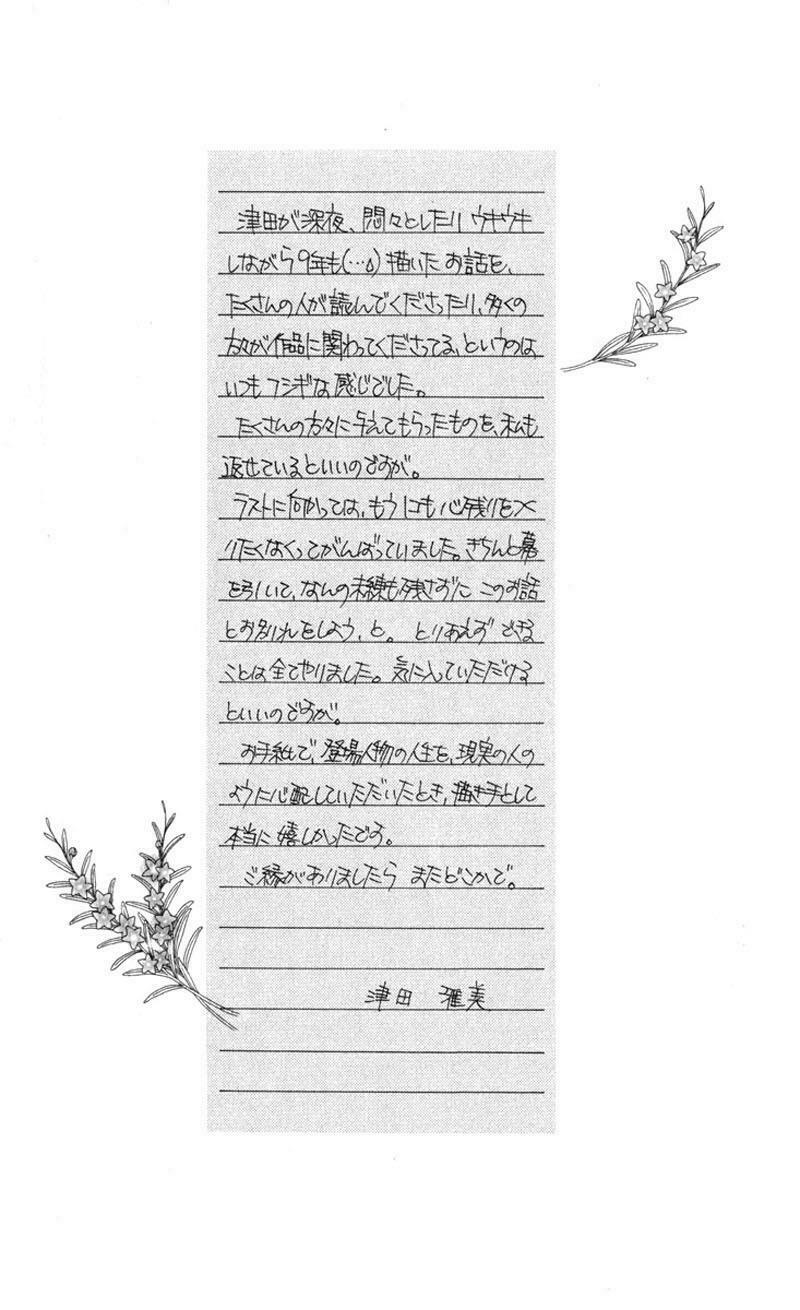 津田が深夜、悶々としたり ウキウキ
しながら9年も(…۵)描いた お話を、
たくさんの人が読んでくださったり、多くの
方々が作品に関わってくださってる、というのは
いつもフシギな感じでした。
たくさんの方々に与えてもらったものを、私も
返せているといいのですが。
ラストに向かっては、もう 心残りをつく
りたくなくってがんばっていました。きちんと幕
を引いて、なんの未練も残さずに このお話
とお別れをしよう、と。 とりあえず できる
ことは全てやりました。気に入っていただける
といいのですが。
お手紙で、登場人物の人生を、現実の人の
ように心配していただいたとき、描き手として
本当に嬉しかったです。
ご縁がありましたら またどこかで。
津田 雅美